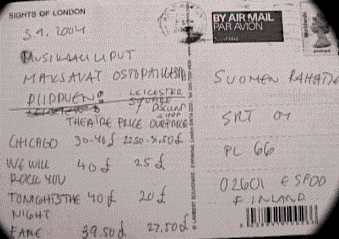 SIGHTS OF LONDON
5.9.2004
MUSIKAALILIPUT
MAKSAVAT OSTOPAIKASTA
RIIPPUEN:
LEICESTER
SQUARE
DISCOUNT
SHOP
THEATRE PRICE OUR PRICE
CHICAGO 30-40£ 22.50-31.50£
WE WILL 40£ 25£
ROCK YOU
TONIGHT'S THE 40£ 20£
NIGHT
FAME 39.50£ 27.50£
BY AIR MAIL
PAR AVION
SUOMEN
PL 66
02601 ESPOO
FINLAND